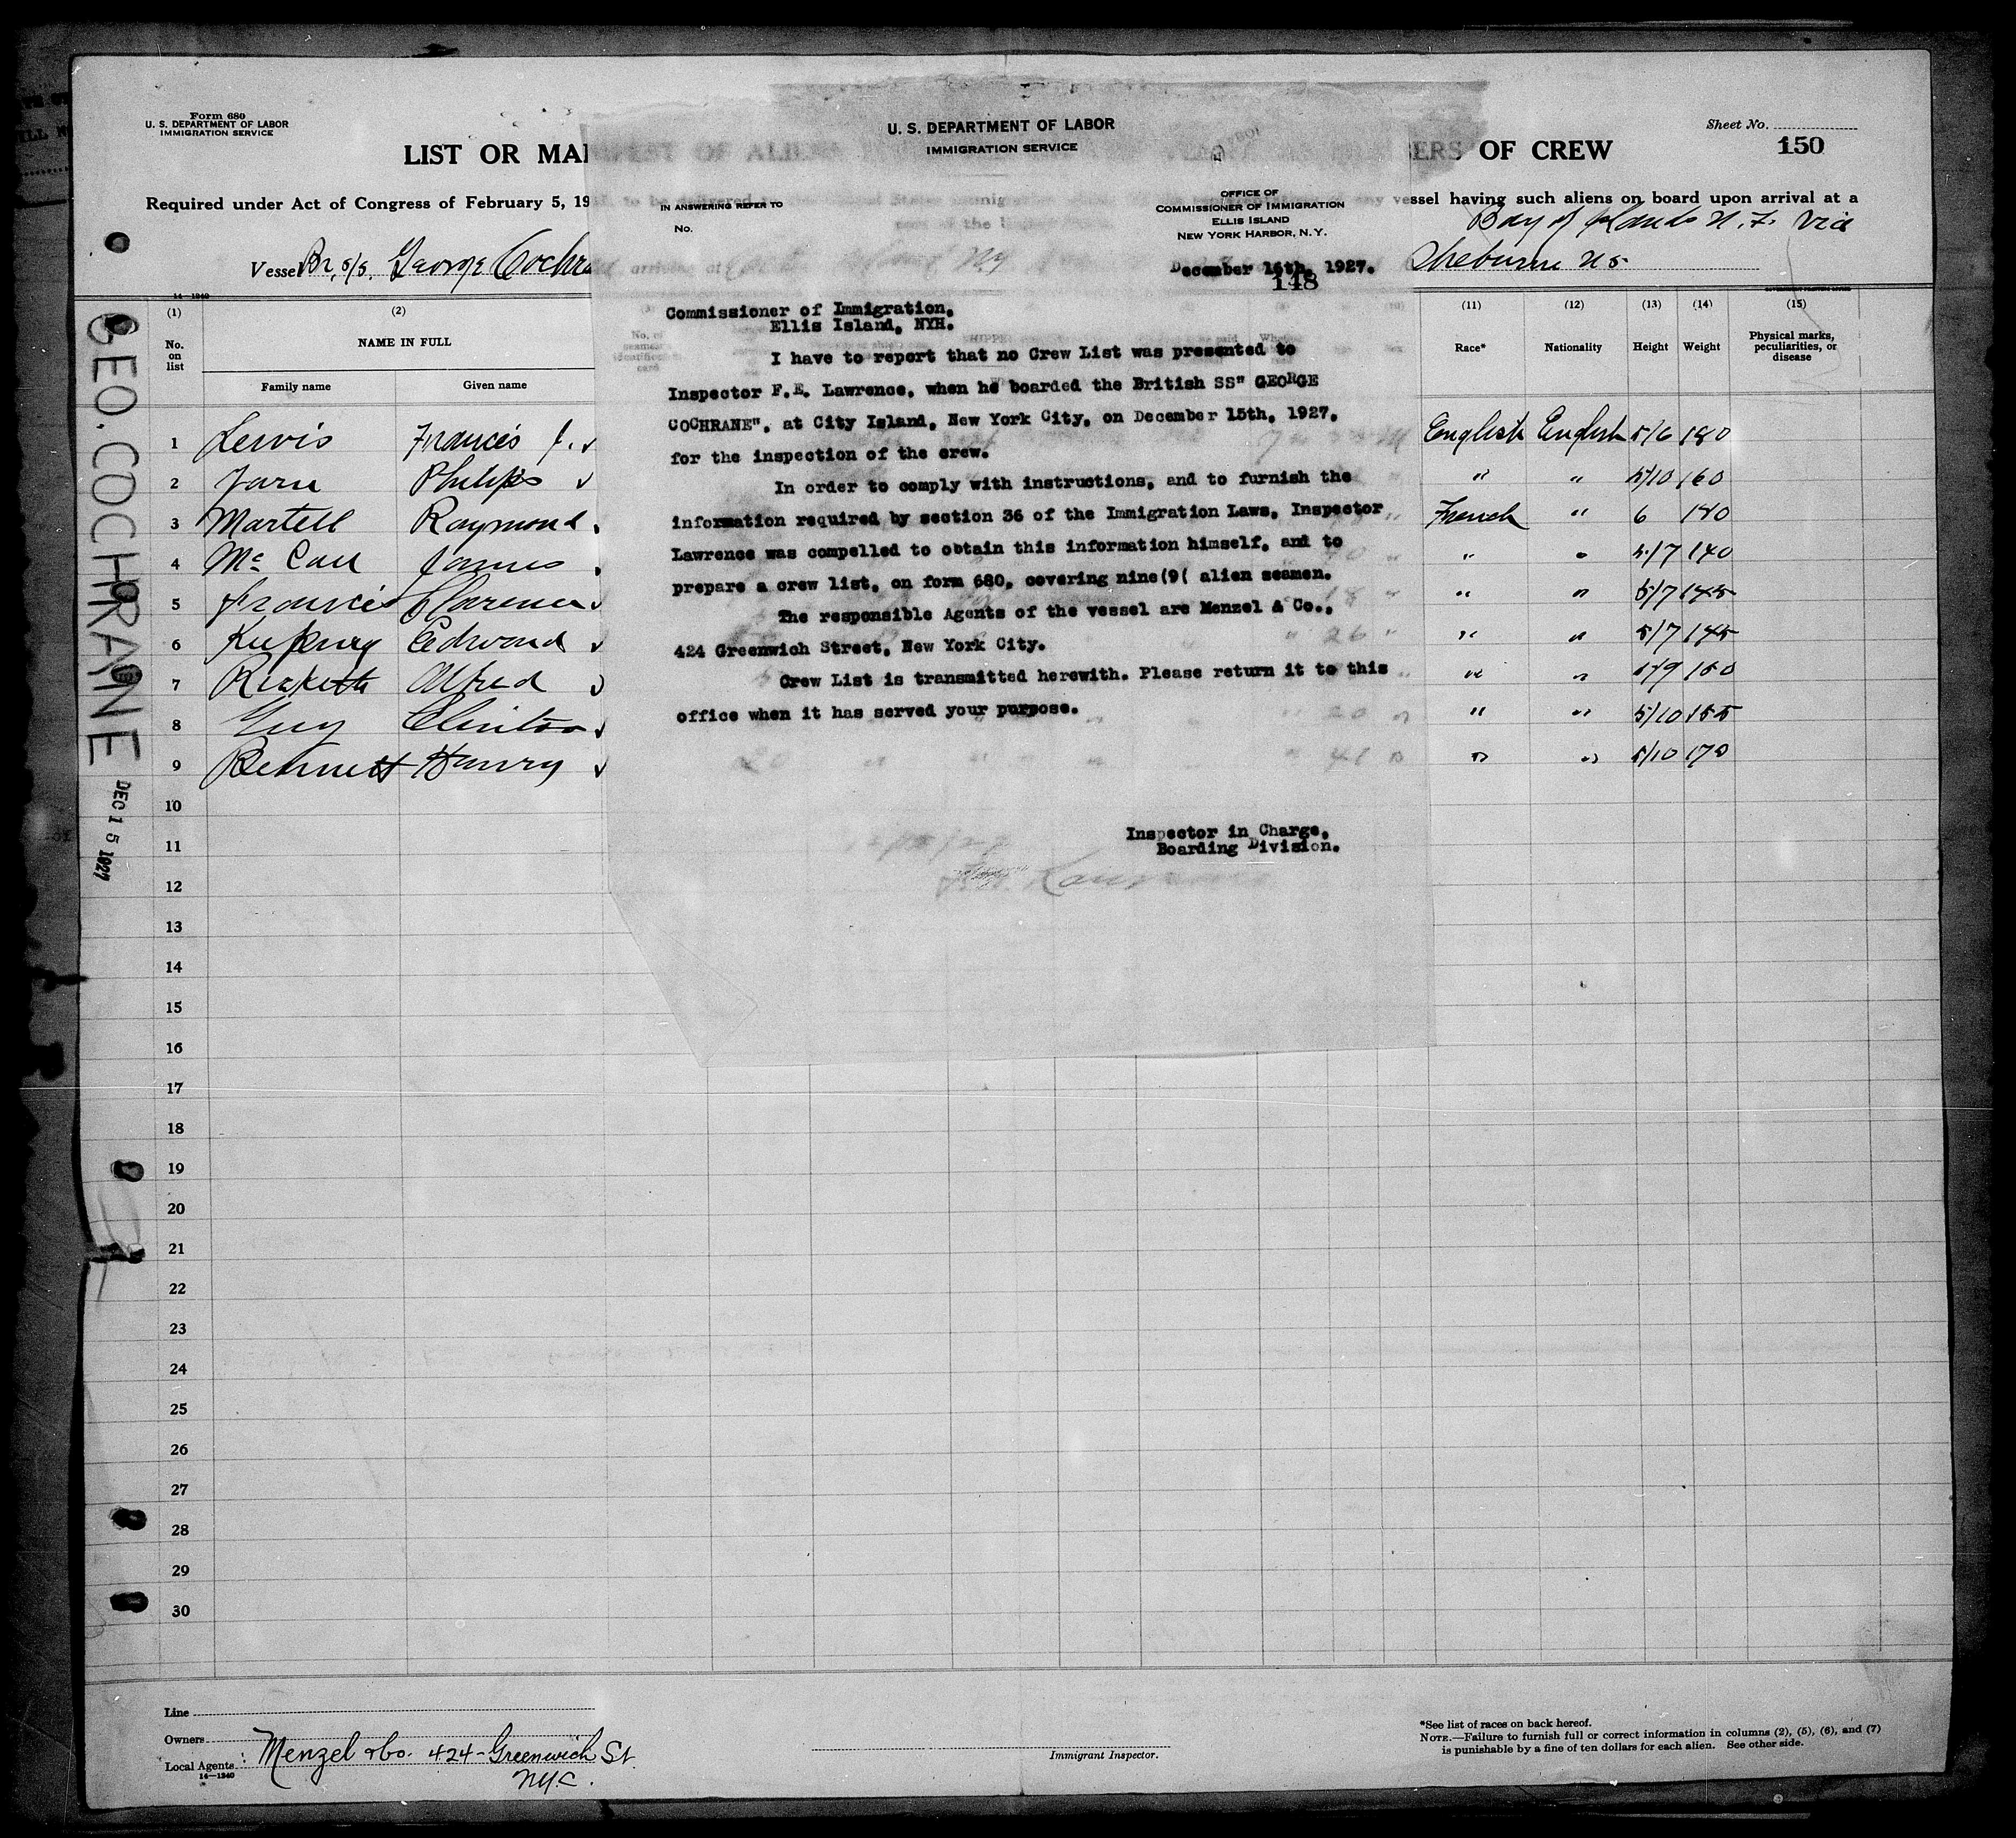 Form 680
U. S. DEPARTMENT OF LABOR
IMMIGRATION SERVICE
LIST OR MA
ERS OF CREW
Sheet No.
150
Required under Act of Congress of February 5, 19
vessel having such aliens on board upon arrival at a
Vessel Br. s/s. George Cochra
Bay of Islands N. F. via
Sheburne N S
U. S. DEPARTMENT OF LABOR
IMMIGRATION SERVICE
IN ANSWERING REFER TO
No.
OFFICE OF
COMMISSIONER OF IMMIGRATION
ELLIS ISLAND
NEW YORK HARBOR, N.Y.
December 16th, 1927.
148
Commissioner of Immigration,
Ellis Island, NYH.
I have to report that no Crew List was presented to
Inspector F.E. Lawrence, when he boarded the British SS" GEORGE
COCHRANE", at City Island, New York City, on December 15th, 1927,
for the inspection of the crew.
In order to comply with instructions, and to furnish the
information required by section 36 of the Immigration Laws, Inspector
Lawrence was compelled to obtain this information himself, and to
prepare a crew list, on form 680, covering nine(9( alien seamen.
The responsible Agents of the vessel are Menzel & Co.,
424 Greenwich Street, New York City.
Crew List is transmitted herewith. Please return it to this
office when it has served your purpose.
Inspector in Charge,
Boarding Division.
14—1240
(1) (2) (11) (12) (13) (14) (15)
No. on list
NAME IN FULL
Family name Given name
Race* Nationality Height Weight
Physical marks, peculiarities, or disease
1 Lewis Francis J. English English 5/6 180
2 Philip 5/10 160
3 Martell Raymond French " 6 180
4 James " " 5/7 140
5 Francis Clarence " " 5/7 145
6 Edward " " 5/7 145
7 Ricketts Alfred " "
8 Guy Clinton " " 5/10 155
9 Bennett Harry " " 5/10 170
10
11
12
13
14
15
16
17
18
19
20
21
22
23
24
25
26
27
28
29
30
GEO. COCHRANE
DEC 15 1927
Line
Owners
Local Agents: Menzel & Co. 424-Greenwich St.
N.Y.C.
14—1240
Immigrant Inspector.
*See list of races on back hereof.
NOTE.—Failure to furnish full or correct information in columns (2), (5), (6), and (7)
is punishable by a fine of ten dollars for each alien. See other side.